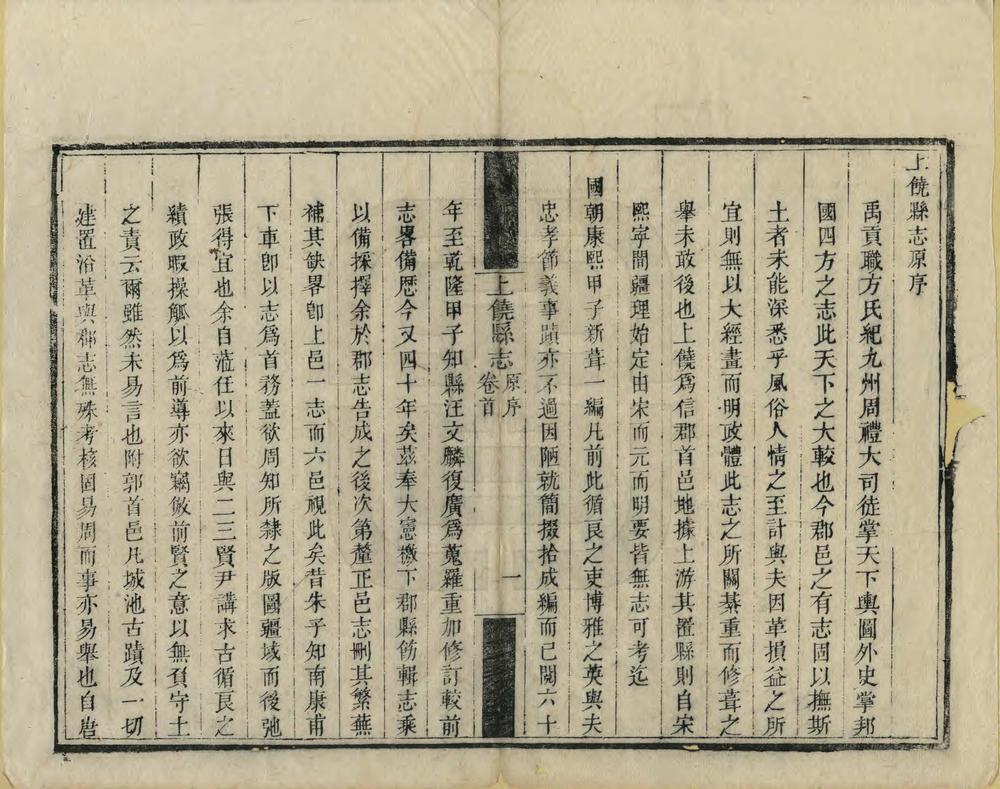 上饒縣志原序
禹貢職方氏紀九州周禮大司徒掌天下輿圖外史掌邦
國四方之志此天下之大較也今郡邑之有志固以撫斯
土者未能深悉乎風俗人情之至計與夫因革損益之所
宜則無以大經畫而明政體此志之所關綦重而修葺之
舉未敢後也上饒爲信郡首邑地據上游其置縣則自宋
熙寧間疆理始定由宋而元而明要皆無志可考迄
國朝康熙甲子新葺一編凡前此循良之吏博雅之英與夫
忠孝節義事蹟亦不過因陋就簡掇拾成編而已閱六十
上饒縣志
原序
卷首
一
年至乾隆甲子知縣汪文麟復廣爲蒐羅重加修訂較前
志畧備歷今又四十年矣茲奉大憲檄下郡縣飭輯志乘
以備採擇余於郡志告成之後次第釐正邑志刪其繁蕪
補其缺畧卽上邑一志而六邑視此矣昔朱子知南康甫
下車卽以志爲首務蓋欲周知所隸之版圖疆域而後弛
張得宜也余自蒞任以來日與二三賢尹講求古循良之
績政暇操觚以爲前導亦欲竊倣前賢之意以無負守土
之責云爾雖然未易言也附郭首邑凡城池古蹟及一切
建置沿革與郡志無殊考核固易周而事亦易舉也自唐